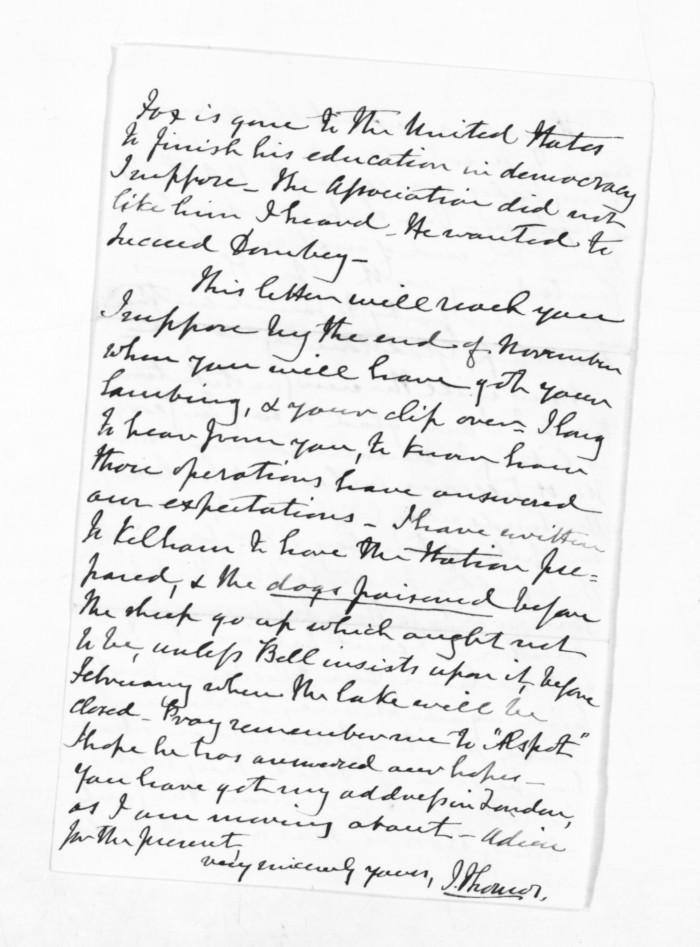 Fox is gone to the United States
to finish his education in democracy
I suppose – the Association did not
like him I heard. He wanted to
succeed Dombey –
This letter will reach you
I suppose by the end of November
when you will have got your
lambing, & your clip over – I long
to hear from you, to know how
those operations have answered
our expectations – I have written
to Kelham to have the Station pre=
pared, & the dogs poisoned before
the sheep go up which ought not
to be, unless Bell insists upon it, before
February when the lake will be
closed – Pray remember me to
I hope he has answered our hopes –
You have got my address in London,
as I am moving about. – Adieu
for the present,
very sincerely yours, J. Thomas.